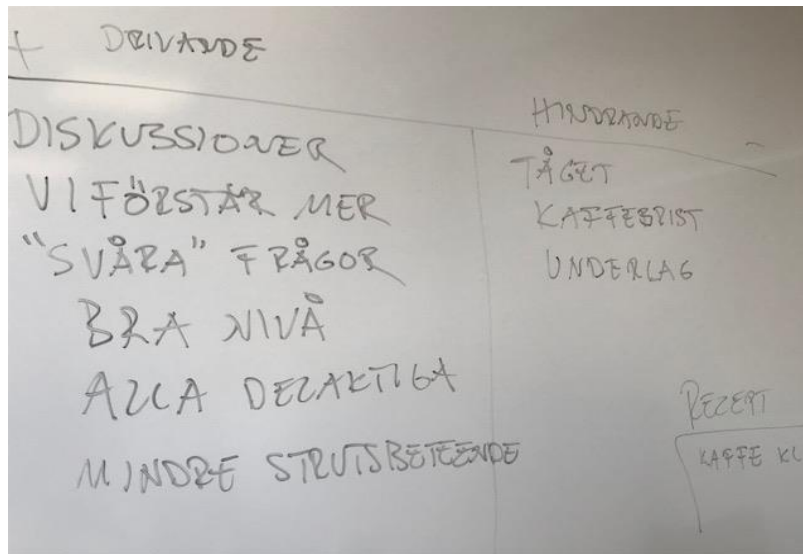 + DRIVANDE
DISKUSSIONER
VI FÖRSTÅR MER
"SVÅRA" FRÅGOR
BRA NIVÅ
ALLA DELAKTIGA
MINDRE STRUTSBETEENDE
HINDRANDE
TÅGET
KAFFEBRIST
UNDERLAG
RECEPT
KAFFE KL